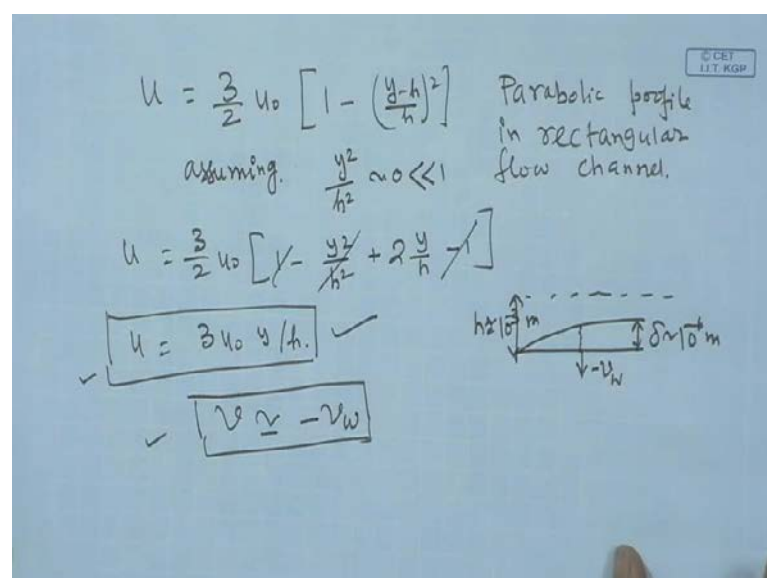 © CET
I.I.T. KGP
u = 3/2 u₀ [1 - ((y-h)/h)²]
Parabolic profile
in rectangular
flow channel.
assuming. y²/h² ~ 0 << 1
u = 3/2 u₀ [1 - y²/h² + 2 y/h - 1]
u = 3u₀ y/h. ✓
✓ v ≃ -v_w
h≈10⁻³ m
δ~10⁻⁶ m
-v_w